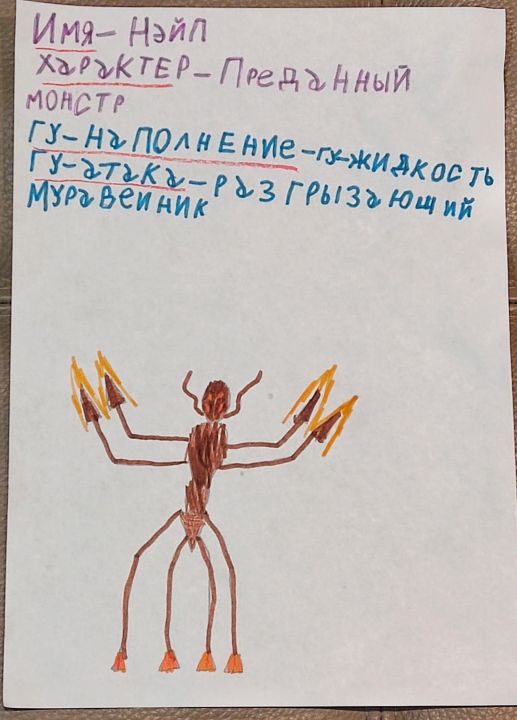 Имя – Нэйп
Характер – Преданный
монстр
Гу – наполнение – гу-жидкость
Гу – атака – разгрызающий
муравейник